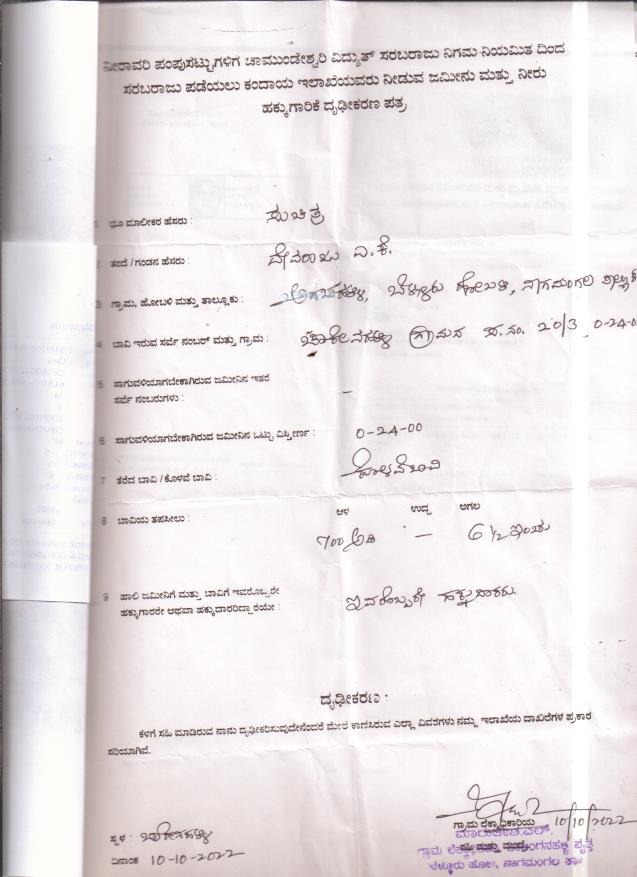 ನೀರಾವರಿ ಪಂಪುಸೆಟ್ಟುಗಳಿಗೆ ಚಾಮುಂಡೇಶ್ವರಿ ವಿದ್ಯುತ್ ಸರಬರಾಜು ನಿಗಮ ನಿಯಮಿತ ದಿಂದ
ಸರಬರಾಜು ಪಡೆಯಲು ಕಂದಾಯ ಇಲಾಖೆಯವರು ನೀಡುವ ಜಮೀನು ಮತ್ತು ನೀರು
ಹಕ್ಕುಗಾರಿಕೆ ದೃಢೀಕರಣ ಪತ್ರ
1 ಭೂ ಮಾಲೀಕರ ಹೆಸರು : ಸುಚಿತ್ರ
2 ತಂದೆ / ಗಂಡನ ಹೆಸರು : ದೇವರಾಜು ಎ.ಕೆ.
3 ಗ್ರಾಮ, ಹೋಬಳಿ ಮತ್ತು ತಾಲ್ಲೂಕು : ಬೆಳ್ಳೂರು ಹೋಬಳಿ, ನಾಗಮಂಗಲ
4 ಬಾವಿ ಇರುವ ಸರ್ವೆ ನಂಬರ್ ಮತ್ತು ಗ್ರಾಮ : ಗ್ರಾಮದ ಸ.ನಂ. 20/3 0-24-0
5 ಸಾಗುವಳಿಯಾಗಬೇಕಾಗಿರುವ ಜಮೀನಿನ ಇತರೆ
ಸರ್ವೆ ನಂಬರುಗಳು : —
6 ಸಾಗುವಳಿಯಾಗಬೇಕಾಗಿರುವ ಜಮೀನಿನ ಒಟ್ಟು ವಿಸ್ತೀರ್ಣ : 0-24-00
7 ತೆರೆದ ಬಾವಿ / ಕೊಳವೆ ಬಾವಿ : ಕೊಳವೆಬಾವಿ
ಆಳ ಉದ್ದ ಅಗಲ
8 ಬಾವಿಯ ತಪಸೀಲು : 700 ಅಡಿ — 6 1/2 ಇಂಚು
9 ಹಾಲಿ ಜಮೀನಿಗೆ ಮತ್ತು ಬಾವಿಗೆ ಇವರೊಬ್ಬರೇ
ಹಕ್ಕುಗಾರರೇ ಅಥವಾ ಹಕ್ಕುದಾರರಿದ್ದಾರೆಯೇ : ಇವರೊಬ್ಬರೇ ಹಕ್ಕುದಾರರು.
ದೃಢೀಕರಣ :
ಕೆಳಗೆ ಸಹಿ ಮಾಡಿರುವ ನಾನು ದೃಢೀಕರಿಸುವುದೇನೆಂದರೆ ಮೇಲೆ ಕಾಣಿಸಿರುವ ಎಲ್ಲಾ ವಿವರಗಳು ನಮ್ಮ ಇಲಾಖೆಯ ದಾಖಲೆಗಳ ಪ್ರಕಾರ
ಸರಿಯಾಗಿವೆ.
ಗ್ರಾಮ ಲೆಕ್ಕಾಧಿಕಾರಿಯ 10/10/2022
ಸ್ಥಳ :
ಗ್ರಾಮ ವೃತ್ತ
ದಿನಾಂಕ 10-10-2022
ಬೆಳ್ಳೂರು ಹೋ।, ನಾಗಮಂಗಲ ತಾ॥